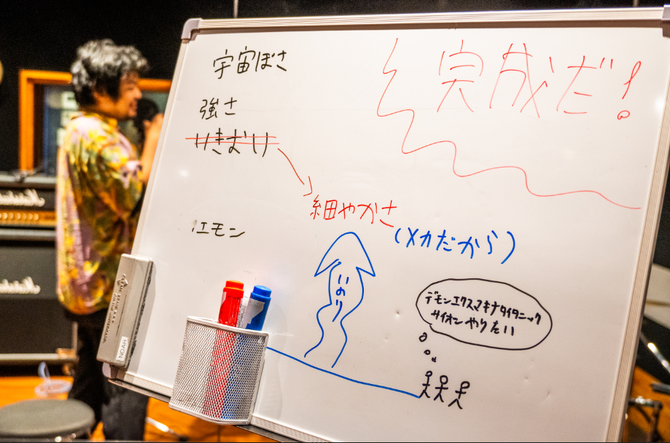 宇宙ぽさ
完成だ!
強さ
いきおい
細やかさ
(メカだから)
エモン
いのり
デモンエクスマキナタイタニック
サイオンやりたい
Marshall